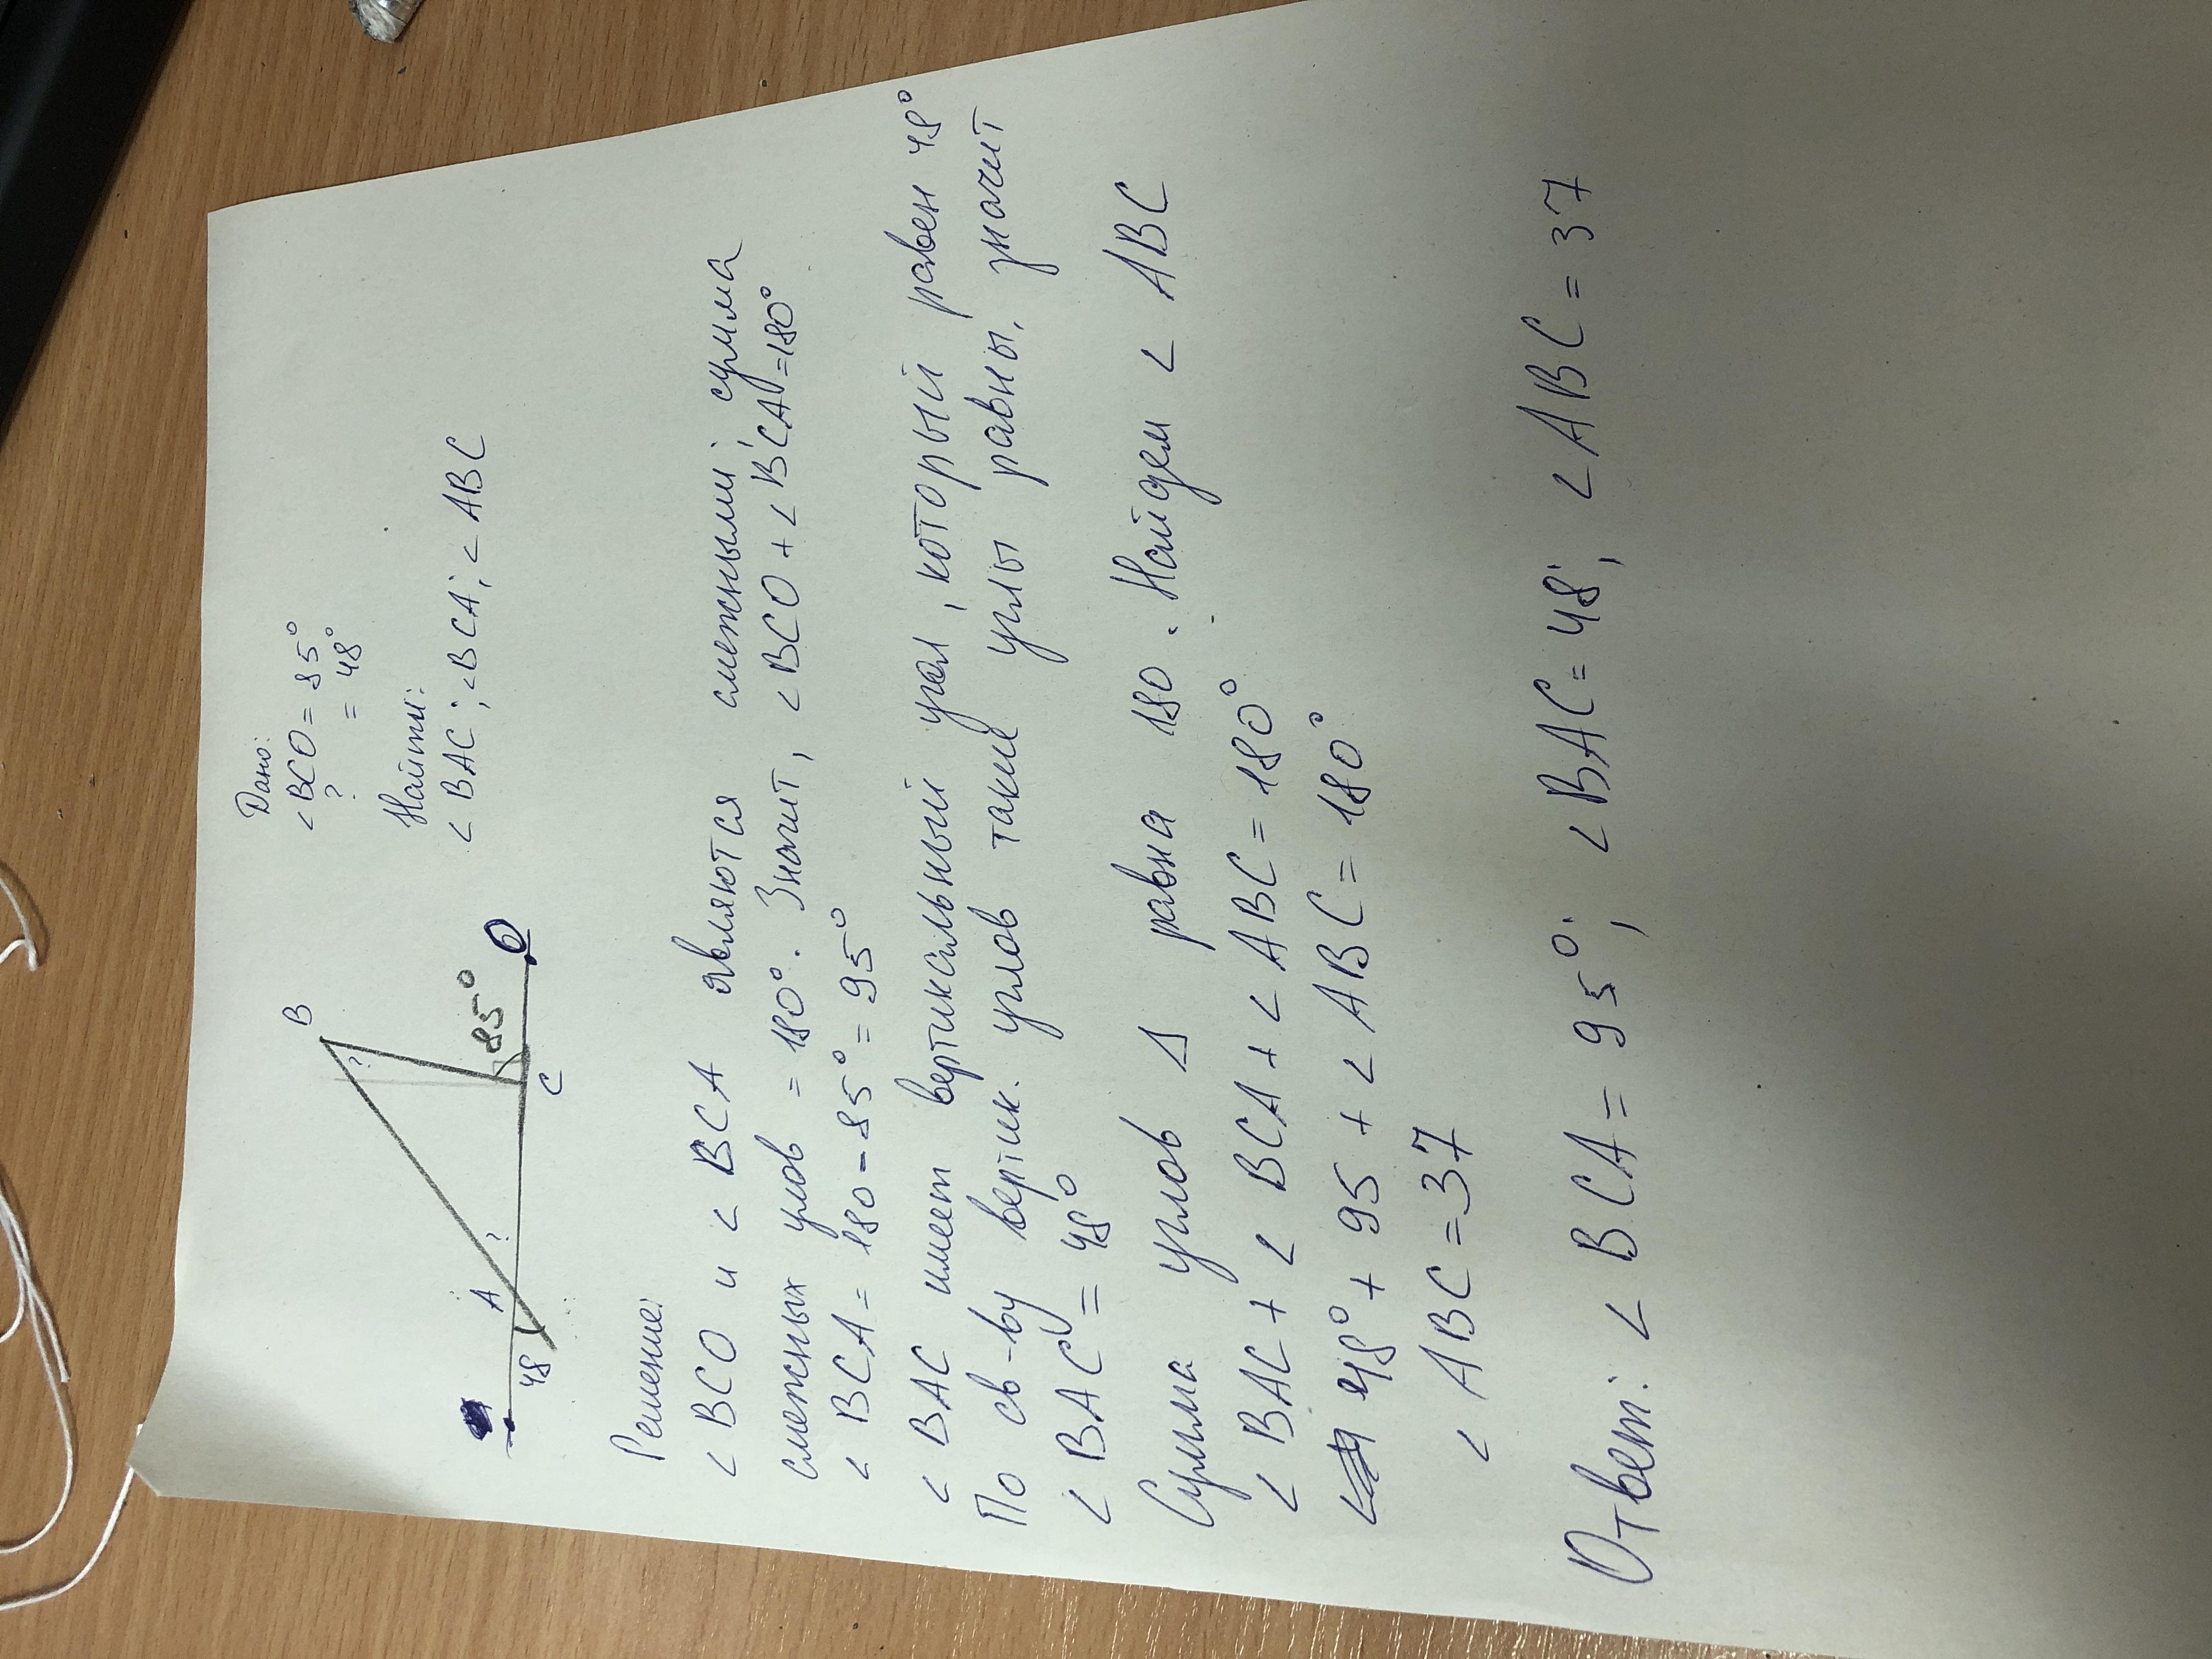 Дано:
< BCO = 85°
? = 48°
Найти:
< BAC ; < BCA ; < ABC
B
?
85°
O
C
?
A
48
Решение:
< BCO и < BCA являются смежными; сумма
смежных углов = 180°. Значит, < BCO + < BCA = 180°
< BCA = 180 - 85° = 95°
< BAC имеет вертикальный угол, который равен 48°
По св-ву вертик. углов такие углы равны, значит
< BAC = 48°
Сумма углов Δ равна 180. Найдем < ABC
< BAC + < BCA + < ABC = 180°
48° + 95 + < ABC = 180°
< ABC = 37
Ответ: < BCA = 95°; < BAC = 48; < ABC = 37